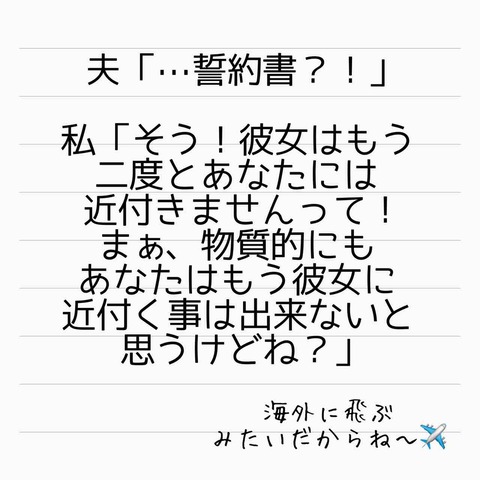 夫「…誓約書？！」
私「そう！彼女はもう
二度とあなたには
近付きませんって！
まぁ、物質的にも
あなたはもう彼女に
近付く事は出来ないと
思うけどね？」
海外に飛ぶ
みたいだからね〜✈️